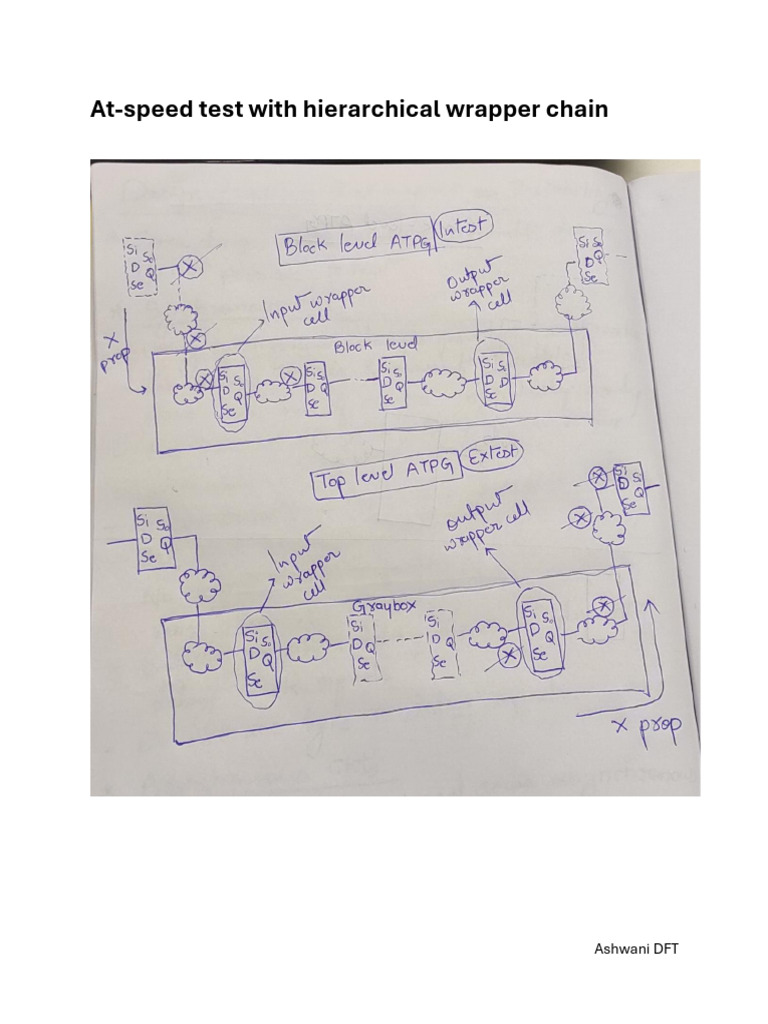 At-speed test with hierarchical wrapper chain
Block level ATPG Intest
Si So
D Q
Se
X
X
X prop
Input wrapper
cell
Output
wrapper
cell
Si So
D Q
Se
Block level
X
Si So
D Q
Se
X
Si So
D Q
Se
Si So
D Q
Se
Si So
D D
Se
Top level ATPG Extest
Si So
D Q
Se
Input
wrapper
cell
Output
wrapper cell
X
Si S
D Q
Se
X
Graybox
Si So
D Q
Se
Si
D Q
Se
Si
D Q
Se
X
Si So
D Q
Se
X
X prop
Ashwani DFT